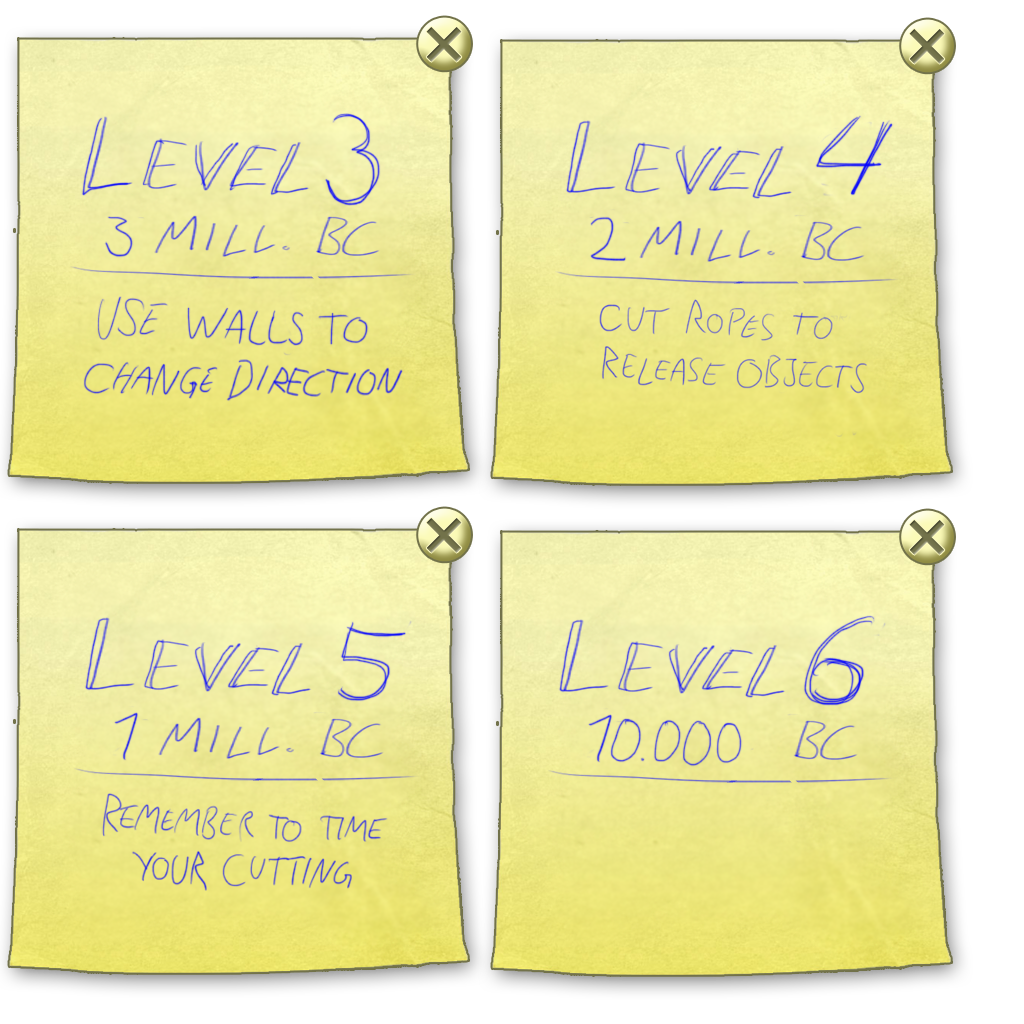 LEVEL 3
3 MILL. BC
USE WALLS TO
CHANGE DIRECTION
LEVEL 4
2 MILL. BC
CUT ROPES TO
RELEASE OBJECTS
LEVEL 5
1 MILL. BC
REMEMBER TO TIME
YOUR CUTTING
LEVEL 6
10.000 BC